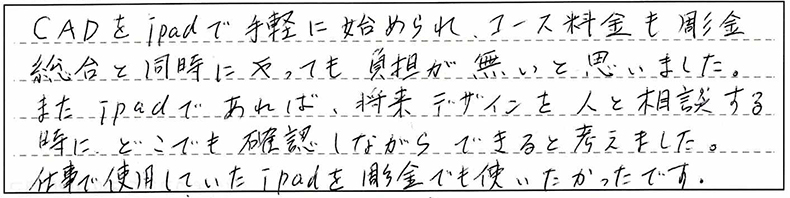 CADをipadで手軽に始められ、コース料金も彫金
総合と同時にやっても負担が無いと思いました。
またipadであれば、将来デザインを人と相談する
時に、どこでも確認しながらできると考えました。
仕事で使用していたipadを彫金でも使いたかったです。